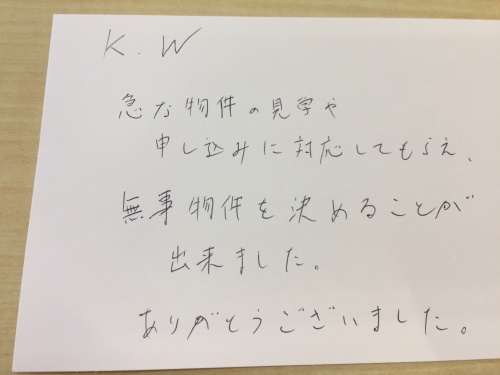 K.W
急な物件の見学や
申し込みに対応してもらえ、
無事物件を決めることが
出来ました。
ありがとうございました。